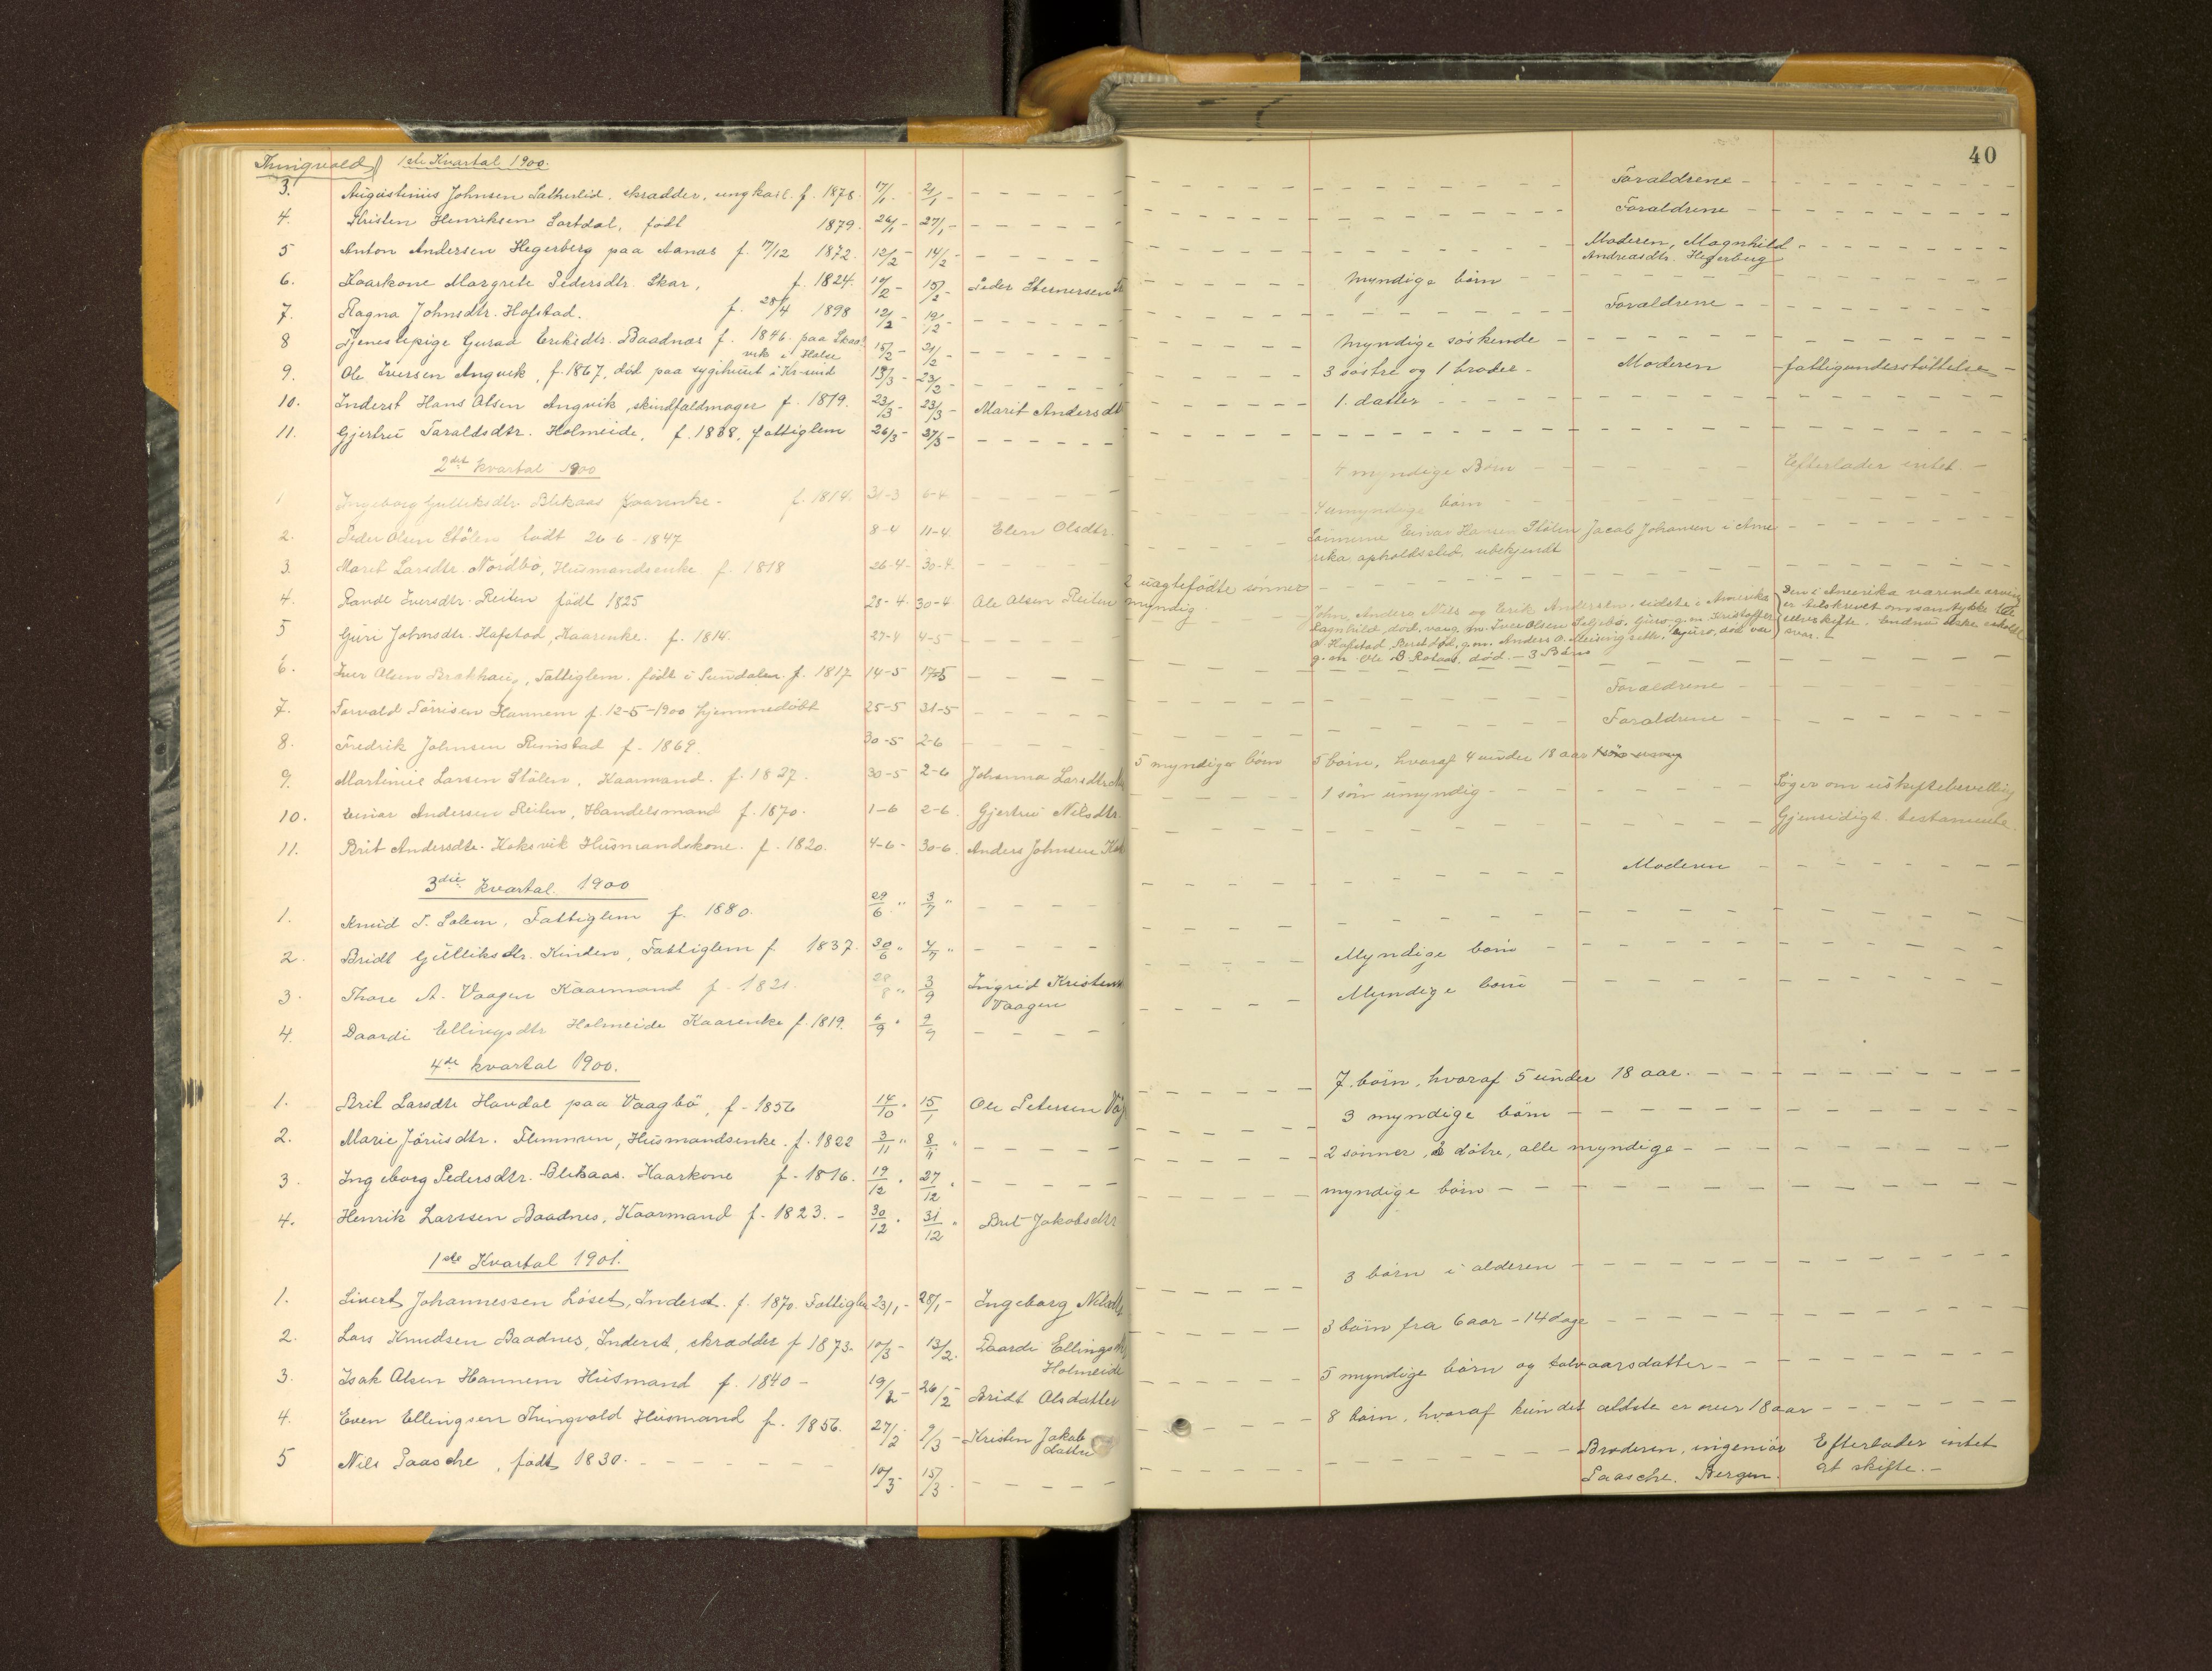 40
Thingvold 1ste Kvartal 1900.
3. Augustinus Johnsen Satherlid, skrædder, ungkarl f. 1878. 17/1 - 21/1 - Forældrene -
4. Kristen Henriksen Sortdal, født 1879. 26/1 - 27/1 - Forældrene -
5 Anton Andersen Hegerberg paa Aanæs f. 17/12 1872. 12/2 - 14/2 - Moderen, Magnhild
Andreasdtr. Hegerberg
6. Kaarkone Margrete Pedersdtr. Skar, f. 1824. 14/2 - 15/2 - Peder Steenersen myndige børn
7. Ragna Johnsdtr. Hofstad. f. 28/4 1898 12/2 - 19/2 - Forældrene -
8 Tjenestepige Guraa Eriksdtr. Baadnæs f. 1846. paa Skaal
vik i Halse 15/2 - 21/2 - Myndige søskende -
9. Ole Iversen Angvik, f. 1867, død paa sygehuset i Kr-sund 13/3 - 23/3 - 3 søstre og 1 broder - Moderen - fattigunderstøttelse -
10. Inderst Hans Olsen Angvik, skindfaldmager f. 1819. 23/3 - 23/3 - Marit Andersdt 1. datter
11. Gjertru Taraldsdtr. Holmeide, f. 1838, fattiglem 26/3 - 27/3 -
2det kvartal 1900
1 Ingeborg Gulliksdtr. Blekaas Kaarenke - f. 1814. 31-3 6-4 4 myndige Børn - Efterlader intet. -
2. Peder Olsen Stølen født 26-6-1847 8-4 11-4. Elen Olsdtr. 4 umyndige børn
3. Marit Larsdtr. Nordbø, Husmandsenke f. 1818 26-4- 30-4. Sønnerne Einar Hansen Stølen Jacob Johansen i Ame
rika, opholdssted ubekjendt
4. Randi Iversdtr. Reiten født 1825 28-4. 30-4. Ole Olsen Reiten 2 uægtefødte sønner
myndig.
5 Guri Johnsdtr. Hafstad, Kaarenke. f. 1814. 27-4 4-5 John, Anders, Nils og Erik Andersen, sidste i Amerika
Ragnhild, død, var g. m. Iver Olsen Seljebø, Guro, g. m. Kristoffer
O Hafstad, Berit død, g. m. Anders O. Meisingseth, Guro, død var
g. m. Ole B Rotaas, død. - 3 Børn
Den i Amerika værende arving
er tilskrevet om samtykke til
selvskifte. Endnu ikke erholdt
svar. -
6. Iver Olsen Brækhaug, Fattiglem. født i Sundalen. f. 1817 14-5 17-5
7. Torvald Tørrisen Hannem f. 12-5-1900 hjemmedøbt 25-5 31-5 Forældrene -
8. Fredrik Johnsen Rimstad f. 1869. 30-5 2-6 Forældrene
9. Martinus Larsen Stølen, Kaarmand. f. 1827. 30-5 2-6 Johanna Larsdtr. 5 myndiger børn 5 børn, hvoraf 4 under 18 aar
10. Einar Andersen Reiten, Handelsmand f. 1870. 1-6 2-6. Gjertru Nilsdtr. 1 søn umyndig - Søger om uskiftebevilling
11. Brit Andersdtr. Koksvik Husmandskone. f. 1820. 4-6- 30-6. Anders Johnsen Kok Gjensidigt testamente.
3die kvartal 1900
1. Knud T. Solem, Fattiglem f. 1880. 29/6 " 3/7 " Moderen
2. Bridt Gulliksdtr. Kinden, Fattiglem f 1837. 30/6 " 4/7 "
3. Thore A. Vaagen Kaarmand f. 1821. 28/8 " 3/9 Ingrid Kristens
Vaagen Myndige børn
4. Daardi Ellingsdtr Holmeide Kaarenke f. 1819. 6/9 " 9/9 Myndige børn
4de kvartal 1900.
1. Brit Larsdtr Havdal paa Vaagbø, f- 1856 14/10 " 15/1 Ole Petersen Våg 7. børn, hvoraf 5 under 18 aar.
2. Marie Jörüsdtr. Flemmen, Husmandsenke. f. 1822 3/11 " 8/11 " 3 myndige børn
3. Ingeborg Pedersdtr. Blekaas. Kaarkone f. 1816. 19/12 " 27/12 " 2 sønner, 2 døtre, alle myndige
4. Henrik Larssen Baadnes, Kaarmand f. 1823. - 30/12 " 31/12 " Brit Jakobsdtr myndige børn
1ste Kvartal 1901.
1. Sivert Johannessen Løset, Inderst. f. 1870. Fattiglem 23/1 - 28/1 - Ingeborg Nilsdt 3 børn i alderen
2. Lars Knudsen Baadnes, Inderst, skrædder f 1873. 10/3 - 13/2. Daardi Ellingsd
Holmeide 3 børn fra 6 aar - 14 dage
3. Isak Olsen Hannem Husmand f. 1840 - 19/2 - 26/2 - Bridt Olsdatter 5 myndige børn og tolvaarsdatter -
4. Even Ellingsen Thingvold Husmand f. 1856. 27/2 - 9/3 - Kristen Jakob
datter 8 børn, hvoraf kun det ældste er over 18 aar -
5 Nils Paasche, født 1830. 10/3 - 15/3 - Broderen, ingeniør
Paasche. Bergen. Efterlader intet
at skifte. -